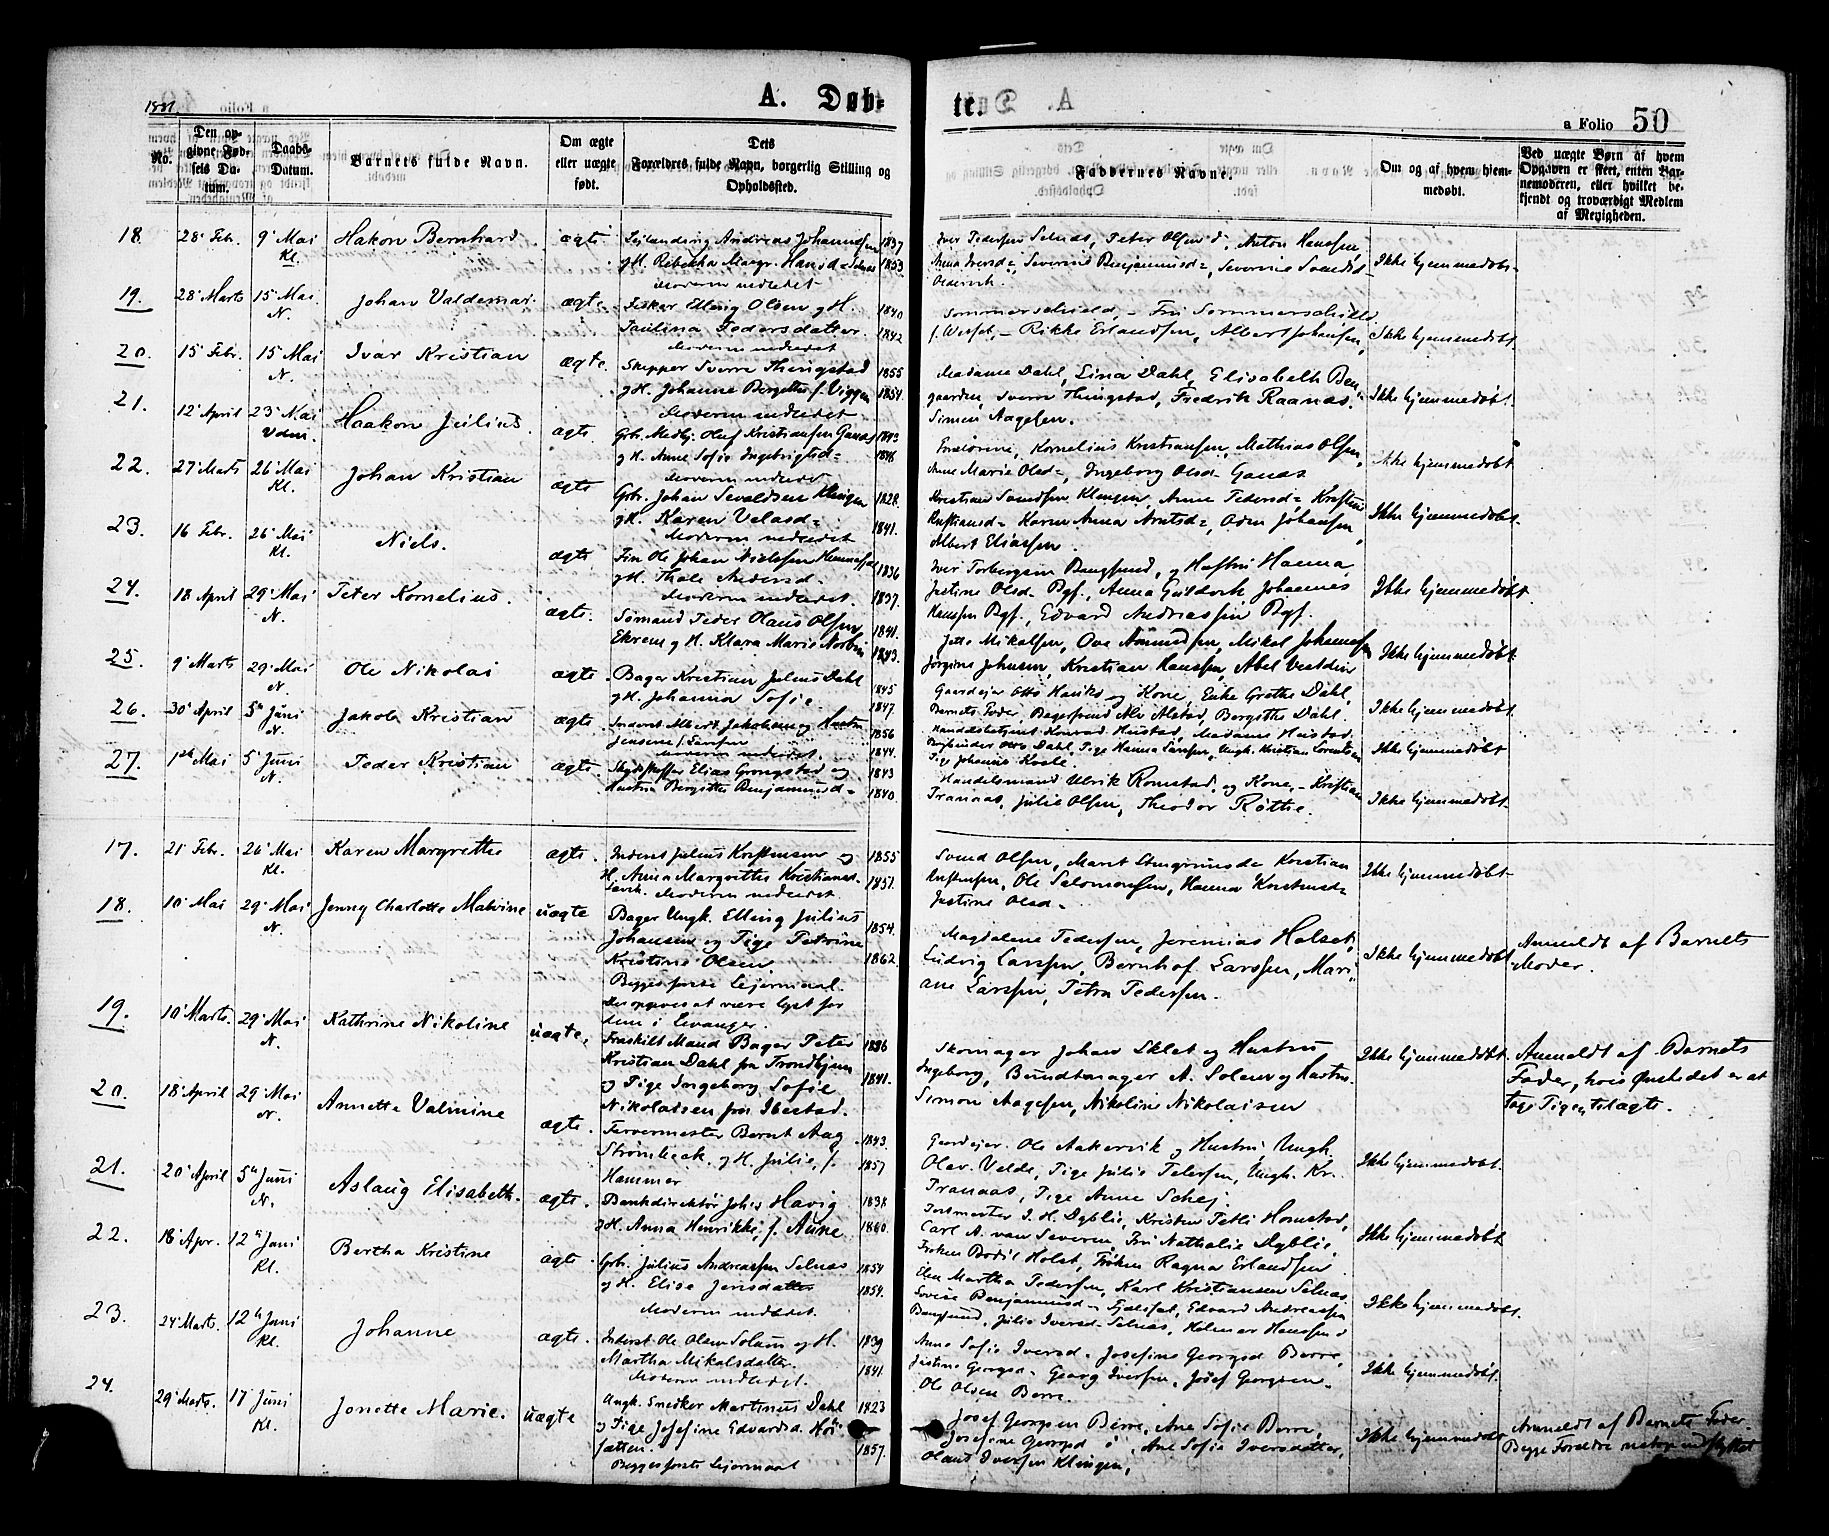 1881
A. Døb-
te.
a Folio 50
No.
Den opgivne Fødsels Datum.
Daabs-Datum.
Barnets fulde Navn.
Om ægte eller uægte født.
Dets Forældres fulde Navn, borgerlig Stilling og Opholdssted.
Faddernes Navne.
Om og af hvem hjemmedøbt.
Ved uægte Børn af hvem Opgaven er skeet, enten Barnemoderen, eller hvilket bekjendt og troværdigt Medlem af Menigheden.
18. 28' Feb. 9' Mai Kl. Hakon Bernhard ægte
Andreas Johannesen 1837
gH. Rebekka Margr. Hansd= Selnæs 1853
Moderen indledet
Iver Pedersen Selnæs, Peter Olsen d, Anton Hanssen
Anna Iversd=, Severine Benjaminsd=, Severine
Ikke hjemmedøbt
19. 28' Marts 15' Mai N. Johan Valdemar ægte
Fisker Elling Olsen gH. 1840
Paulina Pedersdatter 1842
Moderen indledet
Sommerschield, - Fru Sommerschield
f. Wessel, - Rikke Erlandsen, Albert Johansen,
Ikke hjemmedøbt.
20. 15' Febr. 15' Mai N. Ivar Kristian ægte.
Skipper Sverre Thingstad 1855
gH. Johanne Bergitte f. Viggen 1854.
Moderen indledet
Madame Dahl, Lina Dahl, Elisabeth Ben
gaarden, Sverre Thingstad, Fredrik Raanæs,
Simon Aagesen.
Ikke hjemmedøbt.
21. 12' April 23' Mai Vdm. Haakon Julius ægte.
Grb. Medhj. Oluf Kristiansen Ganæs 1843
gH. Anne Sofie Ingebrigtsd= 1846
Moderen indledet
Forældrene, Kornelius Kristiansen, Mathias Olsen,
Anne Marie Olsd=, Ingeborg Olsd= Ganæs
Ikke hjemmedøbt
22. 27' Marts 26' Mai Kl. Johan Kristian ægte
Grb. Johan Sevaldsen Klingen 1828.
gH. Karen Velasd= 1841.
Moderen indledet
Kristian Svendsen Klingen, Anne Pedersd=
Kristiansd= Karen Anna Arntsd=, Oden Johansen,
Albert Eliassen.
Ikke hjemmedøbt.
23. 16' Febr. 26' Mai Kl. Niels. ægte.
Fin Ole Johan Nielssen 1836
gH. Thale Andersd= 1837.
Moderen indledet.
Iver Torbergsen Bangsund, og Hustru Hanna,
Justine Olsd= Bgs., Anna Johannes
Hanssen Bgs., Edvard Andreassen Bgs.
Ikke hjemmedøbt.
24. 18' April 29' Mai N. Peter Kornelius. ægte.
Sømand Peder Olaus Olsen 1841.
Ekrem gH. Klara Marie 1843.
Mikalsen, Ove Amundsen, Mikal Johansen
Jørgine Johnsen, Kristian Hanssen, Abel
Ikke hjemmedøbt.
25. 9' Marts 29' Mai N. Ole Nikolai ægte.
Bager Kristian Julius Dahl 1845
gH. Johanna Sofie 1847.
Gaardejer Otto og Kone, Enke Grethe Dahl,
Barnets Fader, Bagersvend Alstad, Bergitte Dahl.
Ikke hjemmedøbt.
26. 30' April 5' Juni N. Jakob Kristian ægte.
Inderst Albert Jakobsen og Hustru 1856
1844.
Moderen indledet.
Handelsbetjent Konrad Hustad, Madame Hustad,
Bogbinder Otto Dahl, Pige Hanna Larsen, Ungk. Kristian
Pige Johanne
Ikke hjemmedøbt
27. 1ste Mai 5' Juni N. Peder Kristian ægte.
Skydsskaffer Elias Grongstad og 1843
Hustru Bergitte Benjaminsd= 1840.
Handelsmand Ulrik Romstad og Kone, - Kristian
Tranaas, Julie Olsen, Theodor Røthe.
Ikke hjemmedøbt.
17. 21' Febr. 26' Mai Kl. Karen Margrethe ægte.
Inderst Julius og 1855
H. Anna Margrethe Kristiansd- 1851.
Moderen indledet.
Svend Olsen, Maret Kristian
Ole Salomonsen, Hanna
Justine Olsd=
Ikke hjemmedøbt
18. 10' Mai 29' Mai N. Jenny Charlotte Malvine uægte
Bager Ungk. Elling Julius 1854.
Johansen og Pige Petrine
Kristine Olsen 1862.
Begges første Lejermaal.
Magdalene Pedersen, Jeremias Holset,
Ludvig Larssen, Bernhof. Larssen, Mari
ane Larssen, Petra Pedersen.
Ikke hjemmedøbt
Anmeldt af Barnets
Moder.
19. 10' Marts. 29' Mai N. Kathrine Nikoline uægte.
Der opgives at være lyst for
dem i Levanger.
Fraskilt Mand Bager Peter 1836
Kristian Dahl fra Trondhjem
og Pige Ingeborg Sofie 1841.
Nikolaisen fra Ibestad.
Skomager Johan Sklet og Hustru
Ingeborg, Bundtmager A. Solem og Hustru
Simon Aagesen, Nikoline Nikolaisen
Ikke hjemmedøbt
Anmeldt af Barnets
Fader, hvis Ønske det er at
tage Pigen tilægte.
20. 18' April 29' Mai N. Annette Valmine ægte.
Farvermester Bernt Aag 1843.
Strømbeck, gH. Julie, f. 1857
Hammer
Gaardejer. Ole Aakervik og Hustru, Ungk.
Olav. Velde, Pige Julie Petersen, Ungk. Kr.
Tranaas, Pige Anne Schej
Ikke hjemmedøbt.
21. 20' April 5' Juni N. Aslaug Elisabeth. ægte.
Bankdirektør Johs Havig 1838
gH. Anna Henrikke, f. Aune 1840.
Postmester I. H. Dyblie, Kristen Petli Homstad,
Carl A. van Severen, Fru Nathalie Dyblie,
Frøken Bodil Holst, Frøken Ragna Erlandsen
Ikke hjemmedøbt
22. 18' Apr. 12' Juni Kl. Bertha Kristine ægte.
Grb. Julius Andreassen Selnæs 1854
gH. Elise Jensdatter 1854.
Moderen indledet.
Elen Martha Pedersen, Karl Kristiansen Selnæs,
Lovise Benjaminsd=, Edvard Andreassen
Bangsund, Julie Iversd- Selnæs, Helmer Hanssen d
Ikke hjemmedøbt.
23. 24' Marts. 12' Juni Kl. Johanne ægte.
Inderst. Ole Olsen Solum gH. 1839
Martha Mikalsdatter. 1841.
Moderen indledet.
Anne Sofie Iversd. Josefine Georgsd Berre,
Justine Georgsd - Georg Iversen, Josef Georgsen-
Ole Olsen Berre.
Ikke hjemmedøbt.
24. 29' Marts. 17' Juni Kl. Jonette Marie. uægte
Ungk. Snedker Martinus Dahl 1823
og Pige Josefine Edvardsd. Hø-
jatten. 1857.
Begges første Lejermaal
Josef Georgsen Berre, Ane Sofie Berre,
Josefine Georgsd d, Ane Sofie Iversdatter,
Olaus Iversen Klingen,
Ikke hjemmedøbt
Anmeldt af Barnets Fader
Begge Forældre